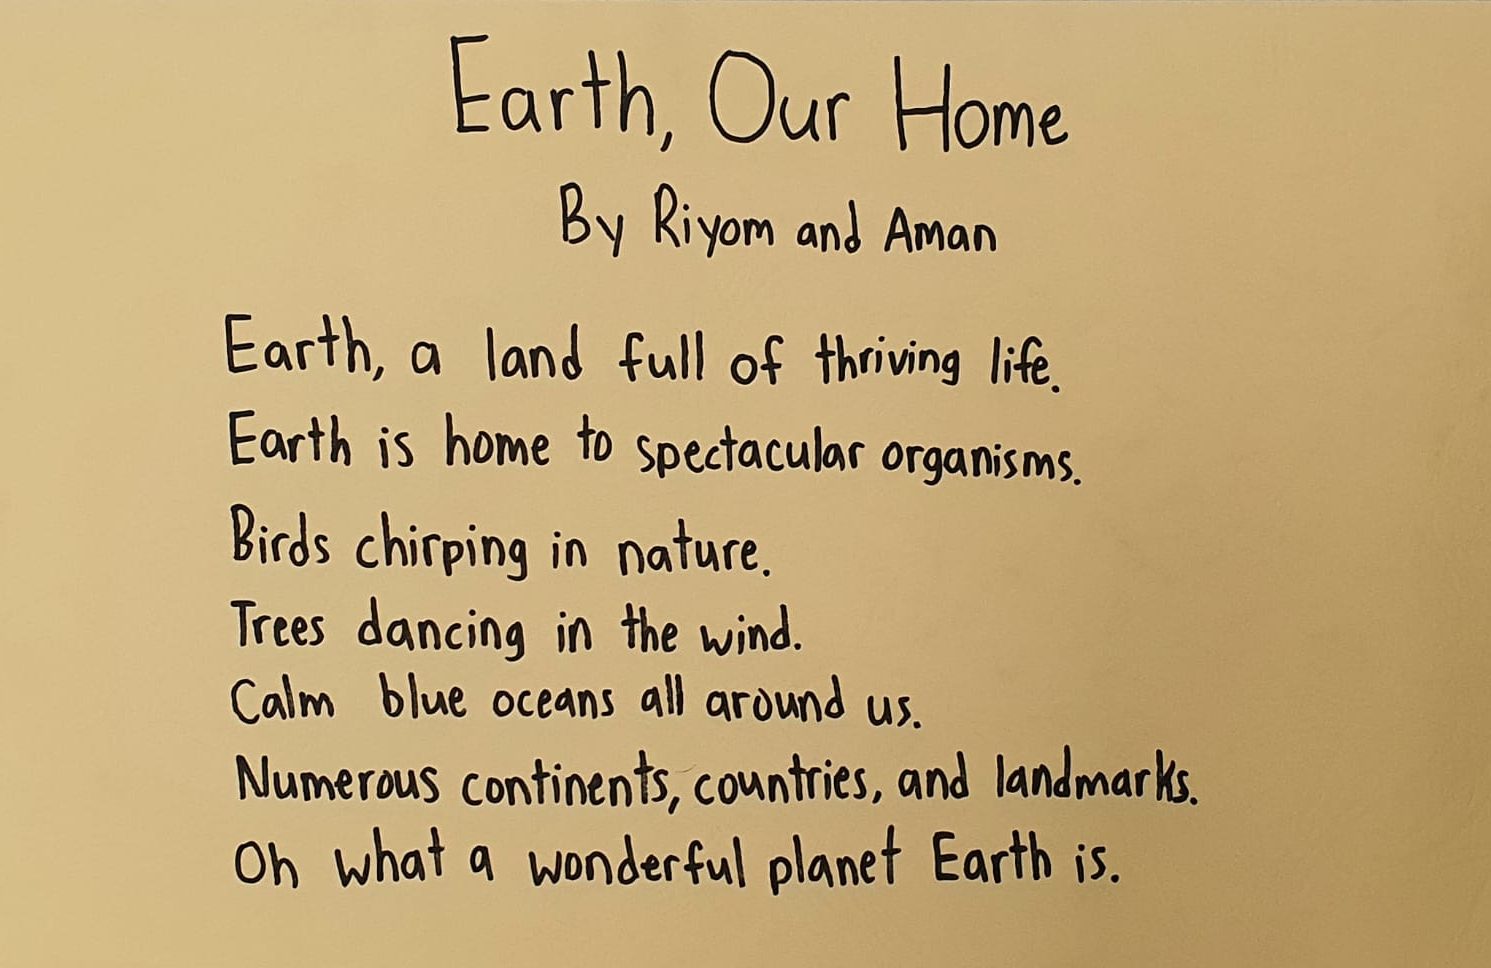 Earth, Our Home
By Riyom and Aman
Earth, a land full of thriving life.
Earth is home to spectacular organisms.
Birds chirping in nature.
Trees dancing in the wind.
Calm blue oceans all around us.
Numerous continents, countries, and landmarks.
Oh what a wonderful planet Earth is.